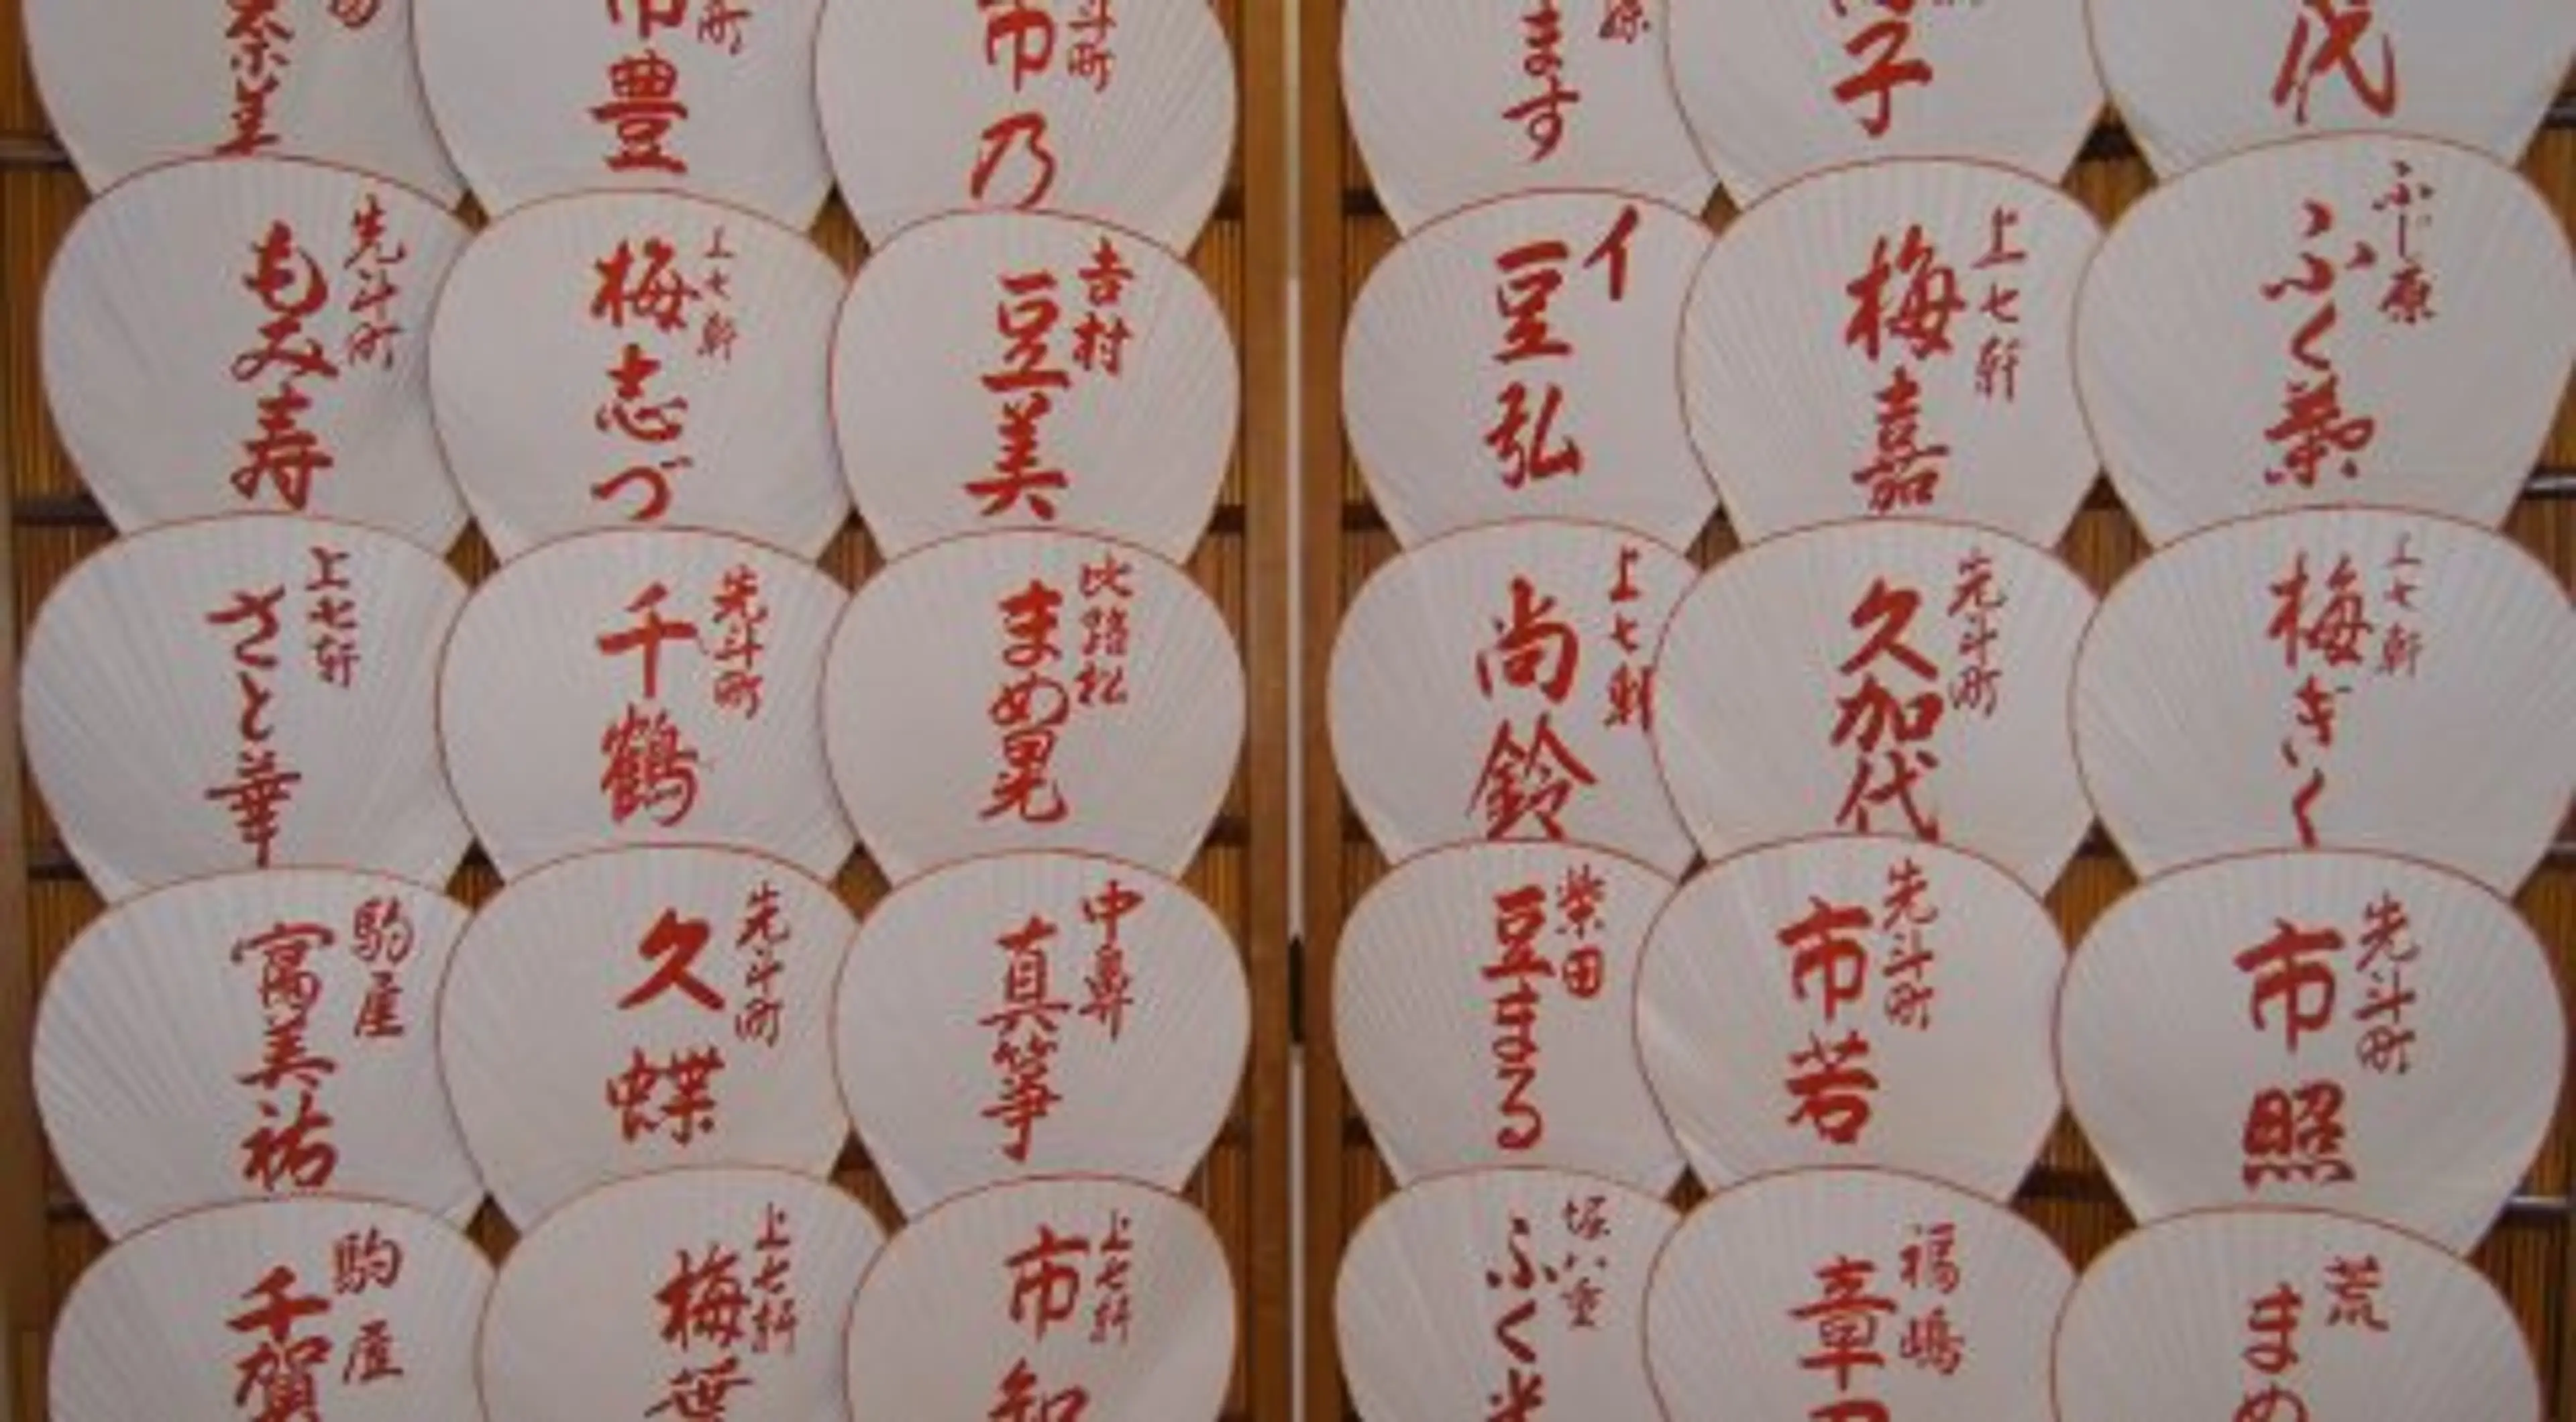 市豊
斗町
市乃
ます
子
代
先斗町
もみ寿
上七軒
梅志づ
吉村
豆美
イ
豆弘
上七軒
梅嘉
ふじ原
ふく葉
上七軒
さと華
先斗町
千鶴
比路松
まめ晃
上七軒
尚鈴
先斗町
久加代
上七軒
梅ぎく
駒屋
富美祐
先斗町
久蝶
中
真箏
柴田
豆まる
先斗町
市若
先斗町
市照
駒屋
千賀
上七軒
梅笹
上七軒
市知
堀八重
ふく
福嶋
章
荒
まめ